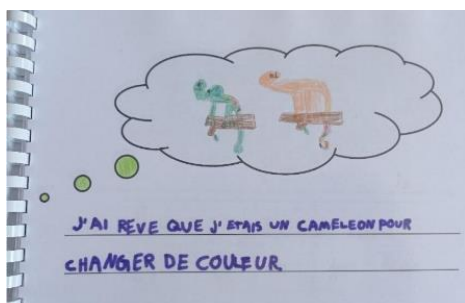 J'AI REVE QUE J'ETAIS UN CAMELEON POUR
CHANGER DE COULEUR